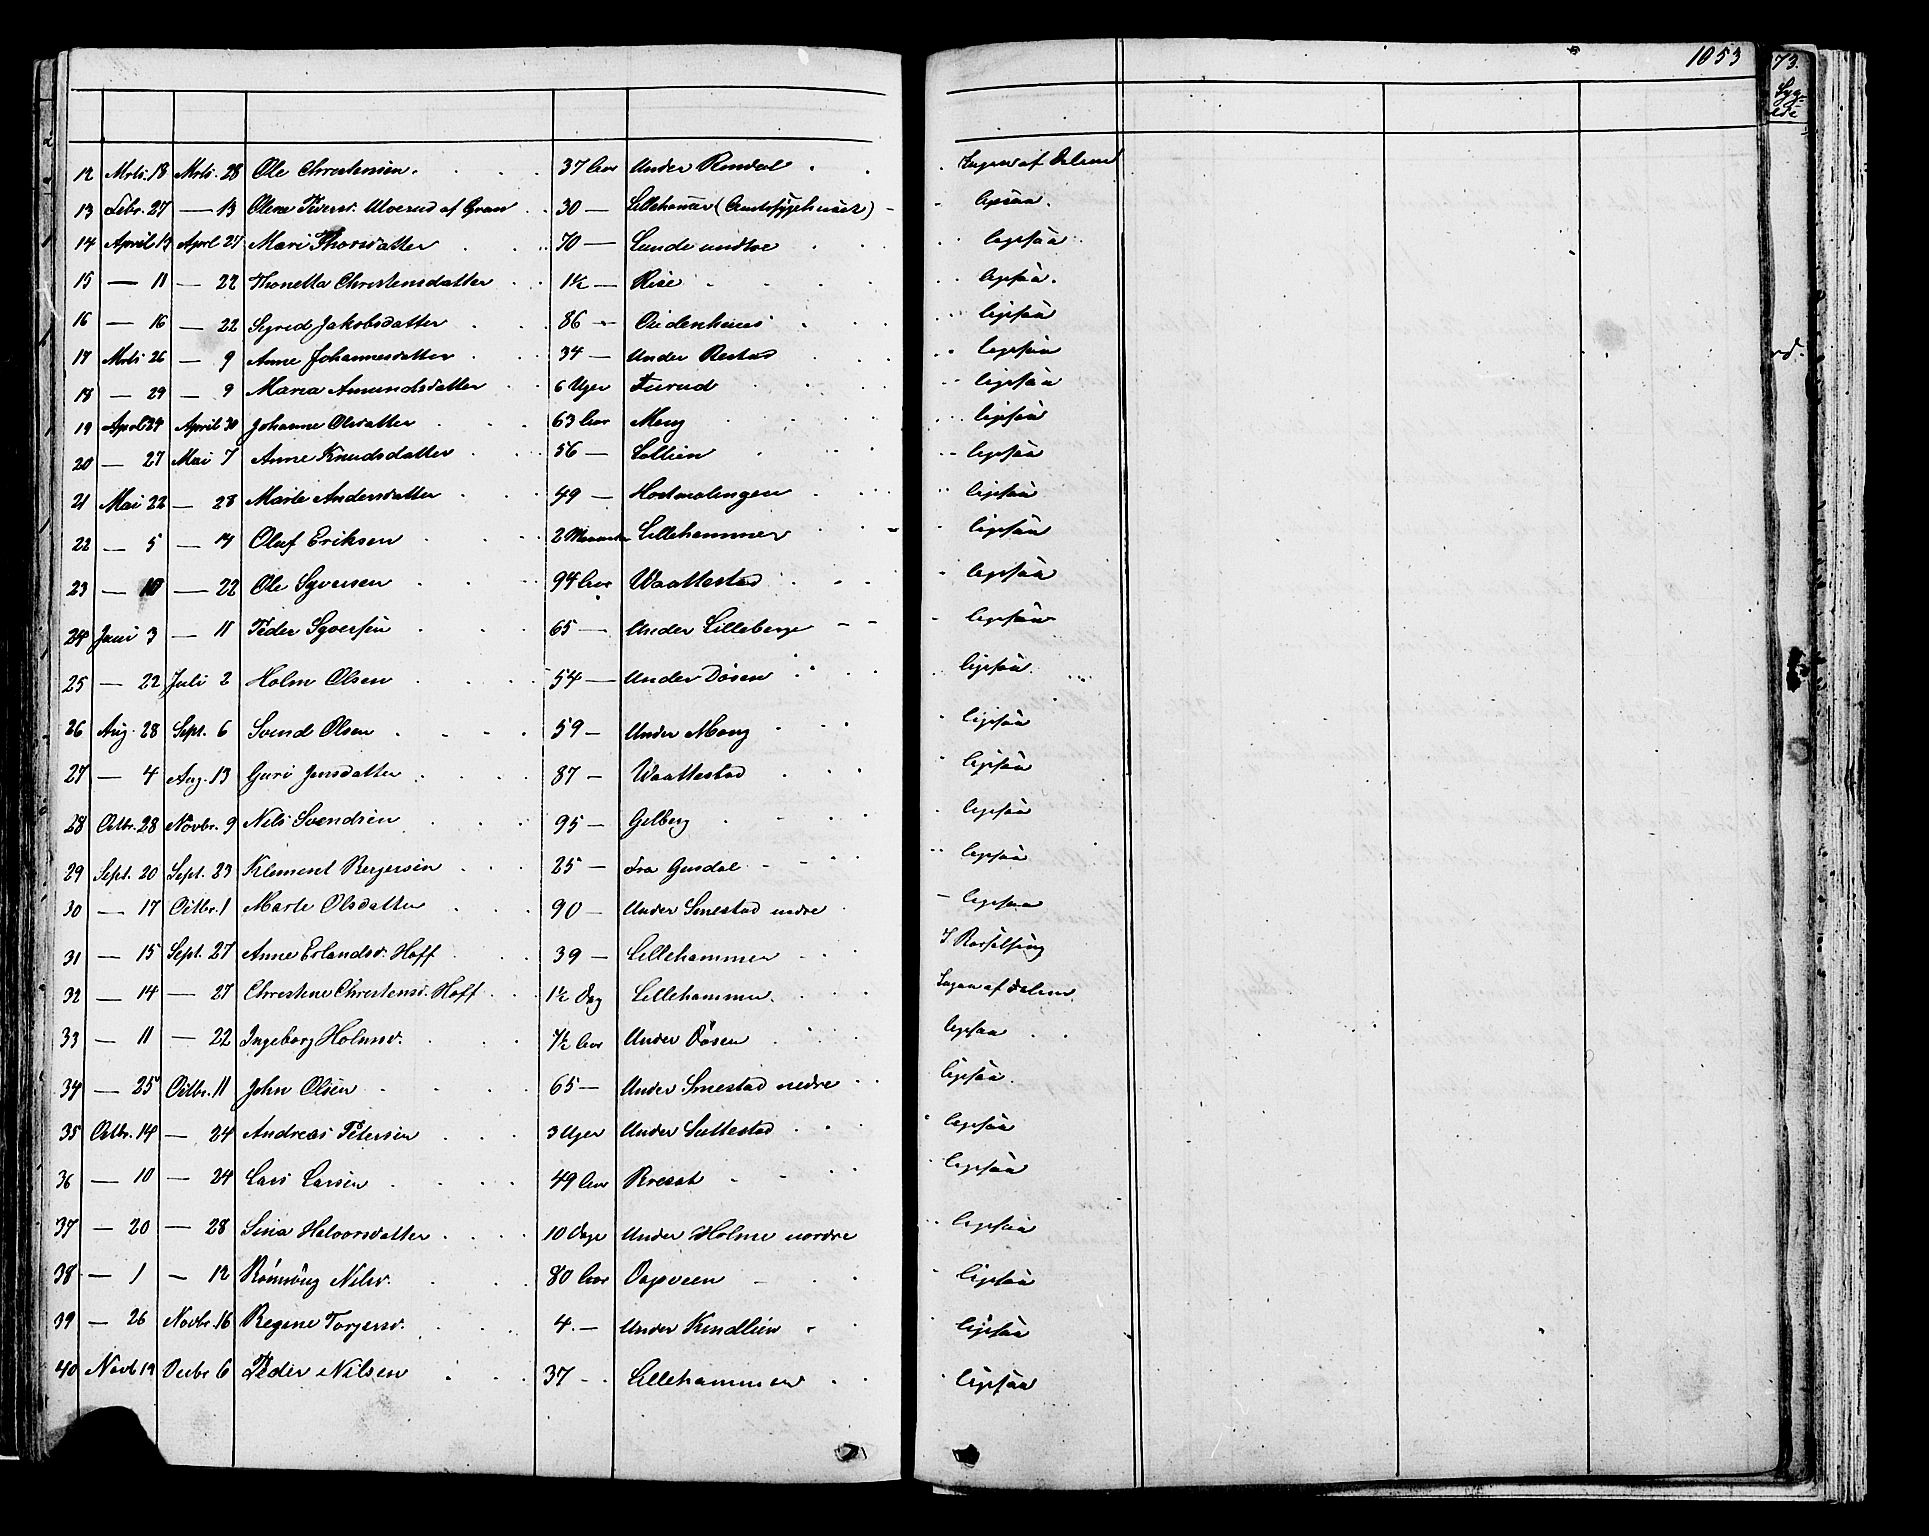 1053
73.
12 Mrts. 18 Mrts. 28 Ole Christensen. 37 Aar Under Rindal Ingen af Delene
13 Febr. 27 — 13 Olene Iversd. Ulverud af Gran 30 — Lillehamer (Amtssygehuset) ligesaa.
14 April 13 Aprl 27 Mari Thorsdatter 70 — Lunde nedtre ligesaa
15 — 11 — 22 Thonetta Christensdatter 1½ — Rise ligesaa.
16 — 16 — 22 Sigrid Jakobsdatter 86 — ligesaa
17 Mrts 26 — 9 Anne Johannesdatter 34 — Under Restad ligesaa
18 — 29 — 9 Maria Amundsdatter 6 Uger Furud ligesaa
19 Aprl 24 April 30 Johanne Olsdatter 63 Aar Meng ligesaa
20 — 27 Mai 7 Anne Knudsdatter 56 — Lollien ligesaa
21 Mai 22 — 28 Marte Andersdatter 49 — ligesaa
22 — 5 — 14 Oluf Eriksen 2 Maaneder Lillehammer ligesaa
23 — 10 — 22 Ole Syversen 94 Aar Waattestad ligesaa
24 Juni 3 — 11 Peder Syversen 65 — Under Lilleberge ligesaa
25 — 22 Juli 2 Holm Olsen 54 — Under Døsen ligesaa
26 Aug. 28 Sept. 6 Svend Olsen 59 — Under Meng ligesaa
27 — 4 Aug. 13 Guri Jensdatter 87 — Waattestad ligesaa
28 Octbr. 28 Novbr. 9 Nils Svendsen 95 — Gilberg ligesaa
29 Sept. 20 Sept. 23 Klement Birgersen 25 — Fra Gusdal ligesaa
30 — 17 Octbr. 1 Marte Olsdatter 90 — Under Smestad nedre ligesaa
31 — 15 Sept. 27 Anne Erlandsd. Hoff 39 — Lillehammer I Barselseng
32 — 14 — 27 Christine Christensd. Hoff 1½ Dag Lillehammer. Ingen af Delene
33 — 11 — 22 Ingeborg Holmsd. 7½ Aar Under Døsen ligesaa
34 — 25 Octbr. 11 John Olsen 65 — Under Smestad nedre ligesaa
35 Octbr. 14 — 24 Andreas Petersen 3 Uger Under Suttestad ligesaa
36 — 10 — 24 Lars Larsen 49 Aar ligesaa
37 — 20 — 28 Sina Halvorsdatter 10 Dage Under Holme nordre ligesaa
38 — 1 — 12 Rønnoug Nilsd. 80 Aar Dagsveen ligesaa
39 — 26 Novbr. 16 Regine Torgersd. 4. — Under Kindlien ligesaa
40 Novb 19 Decbr 6 Peder Nilsen 37 — Lillehammer ligesaa